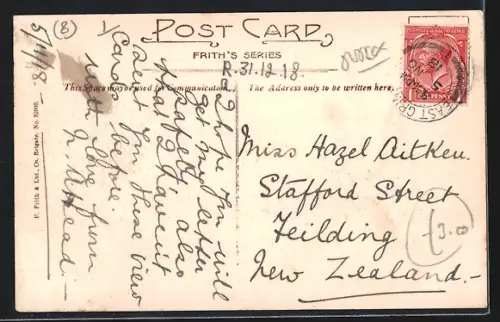 POST CARD
FRITH'S SERIES
R. 31.12.18.
This Space may be used for Communication.
The Address only to be written here.
5/11/18. -
(8)
1/
I hope you will
get my letter
safely, also
that I haven't
sent you these view
Cards before.
with love from
F. Frith & Ltd., Co. Reigate. No.
Miss Hazel Aitken.
Stafford Street
Feilding
New Zealand. -
EAST GRIN
18
PENNY